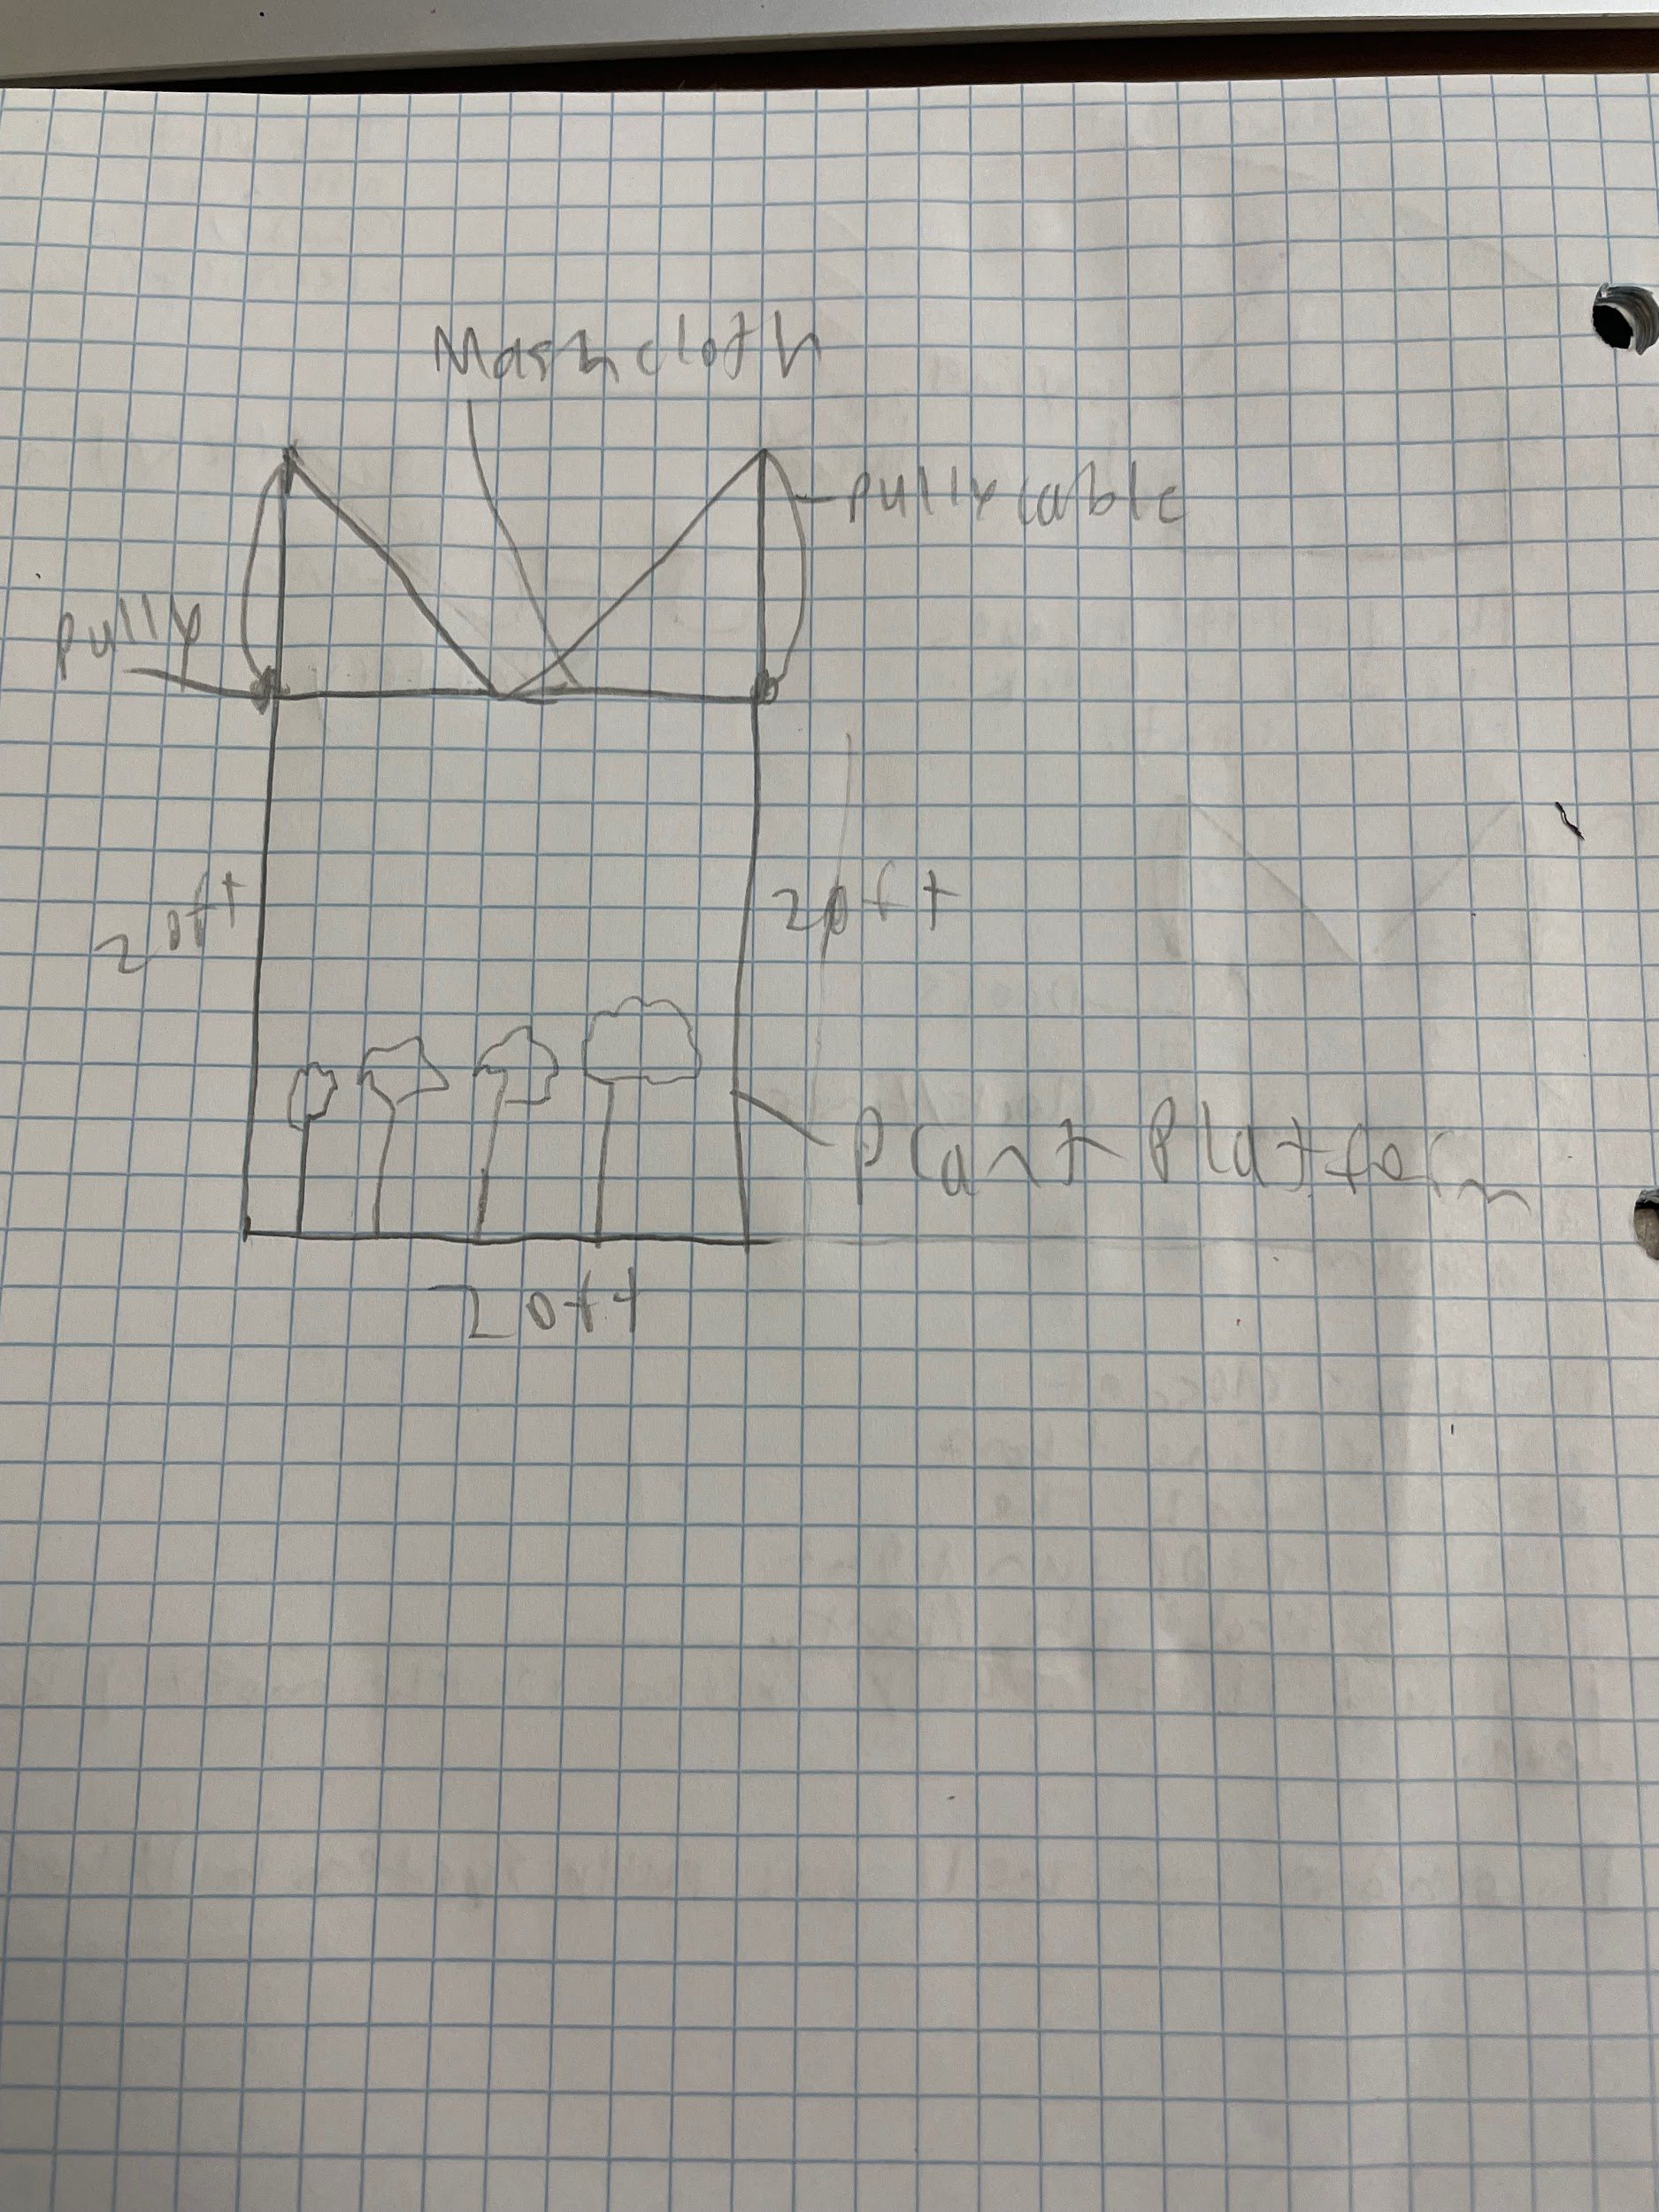 Mashcloth
Pully cable
Pully
20ft
20ft
Plant Platform
20ft